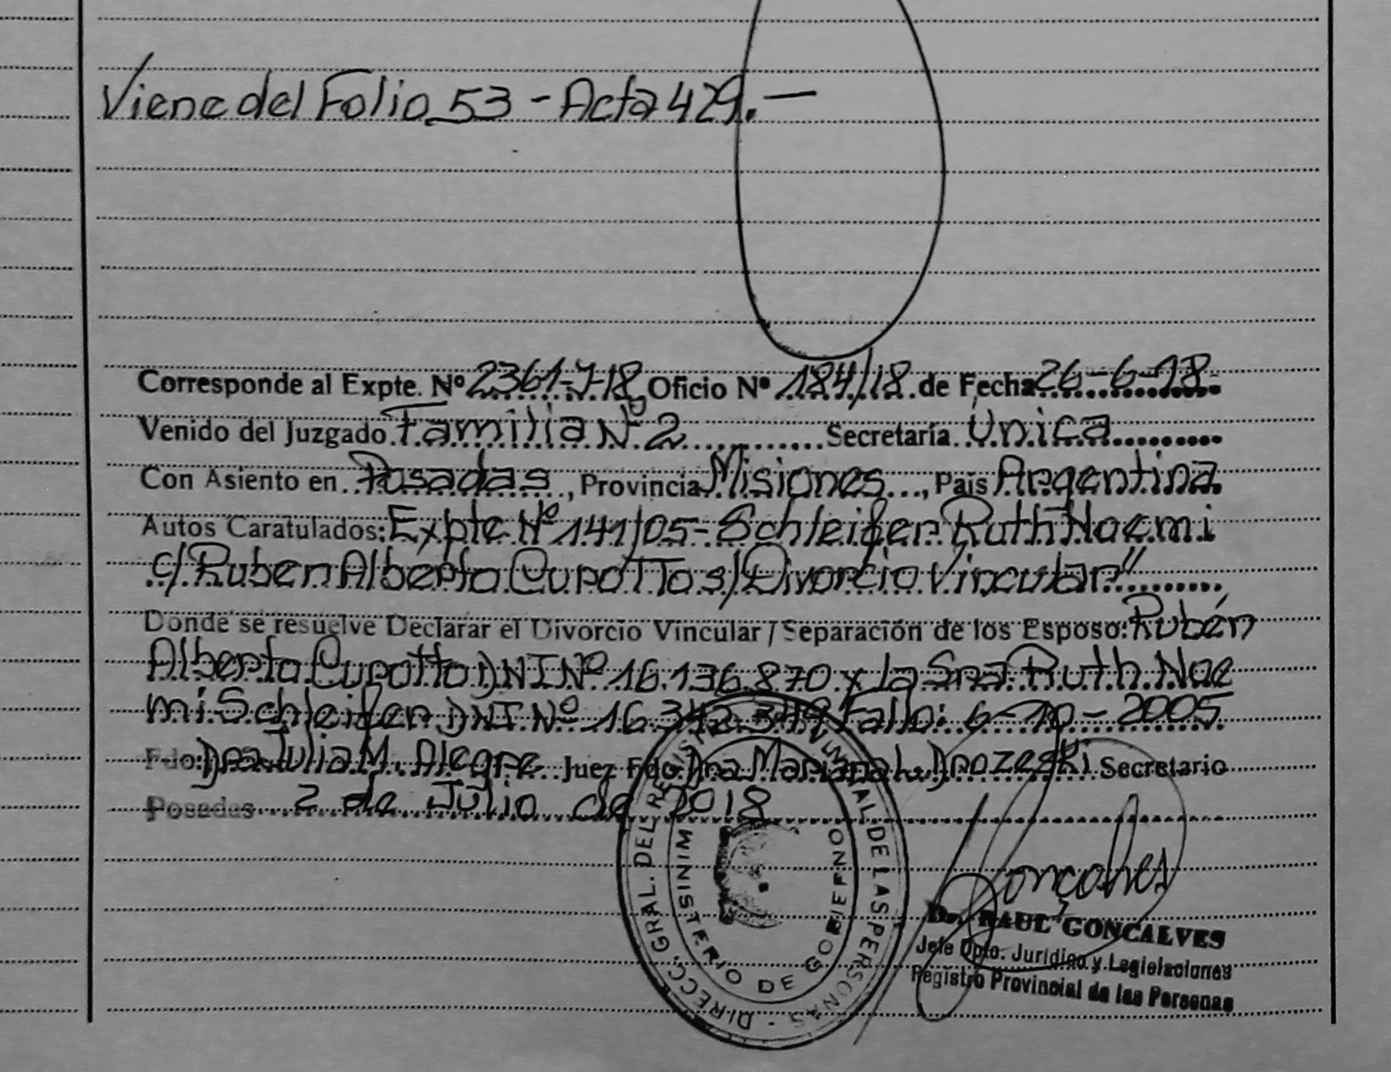 Viene del Folio 53 - Acta 429.—
Corresponde al Expte. Nº 2361-J-18, Oficio Nº 184/18 de Fecha 26-6-18.
Venido del Juzgado Familia Nº 2 Secretaría Única
Con Asiento en Posadas, Provincia Misiones, País Argentina.
Autos Caratulados: Expte Nº 141/05- Schleifer Ruth Noemi
c/ Ruben Alberto Cupotto s/ Divorcio Vincular"
Donde se resuelve Declarar el Divorcio Vincular / Separación de los Esposo: Rubén
Alberto Cupotto DNI Nº 16.136.870 y la Sra Ruth Noe
mi Schleifer DNI Nº 16.342.349 Fallo: 6-10-2005.
Fdo: Dra Julia M. Alegre Juez Fdo: Dra Mariana L. Drozeski Secretario
Posadas 2 de Julio de 2018
DIRECC. GRAL. DEL REGIST DE LAS PERSONAS
MINISTERIO DE GOBIERNO
Goncalves
Dr. RAUL GONCALVES
Jefe Dpto. Jurídico y Legislaciones
Registro Provincial de las Personas